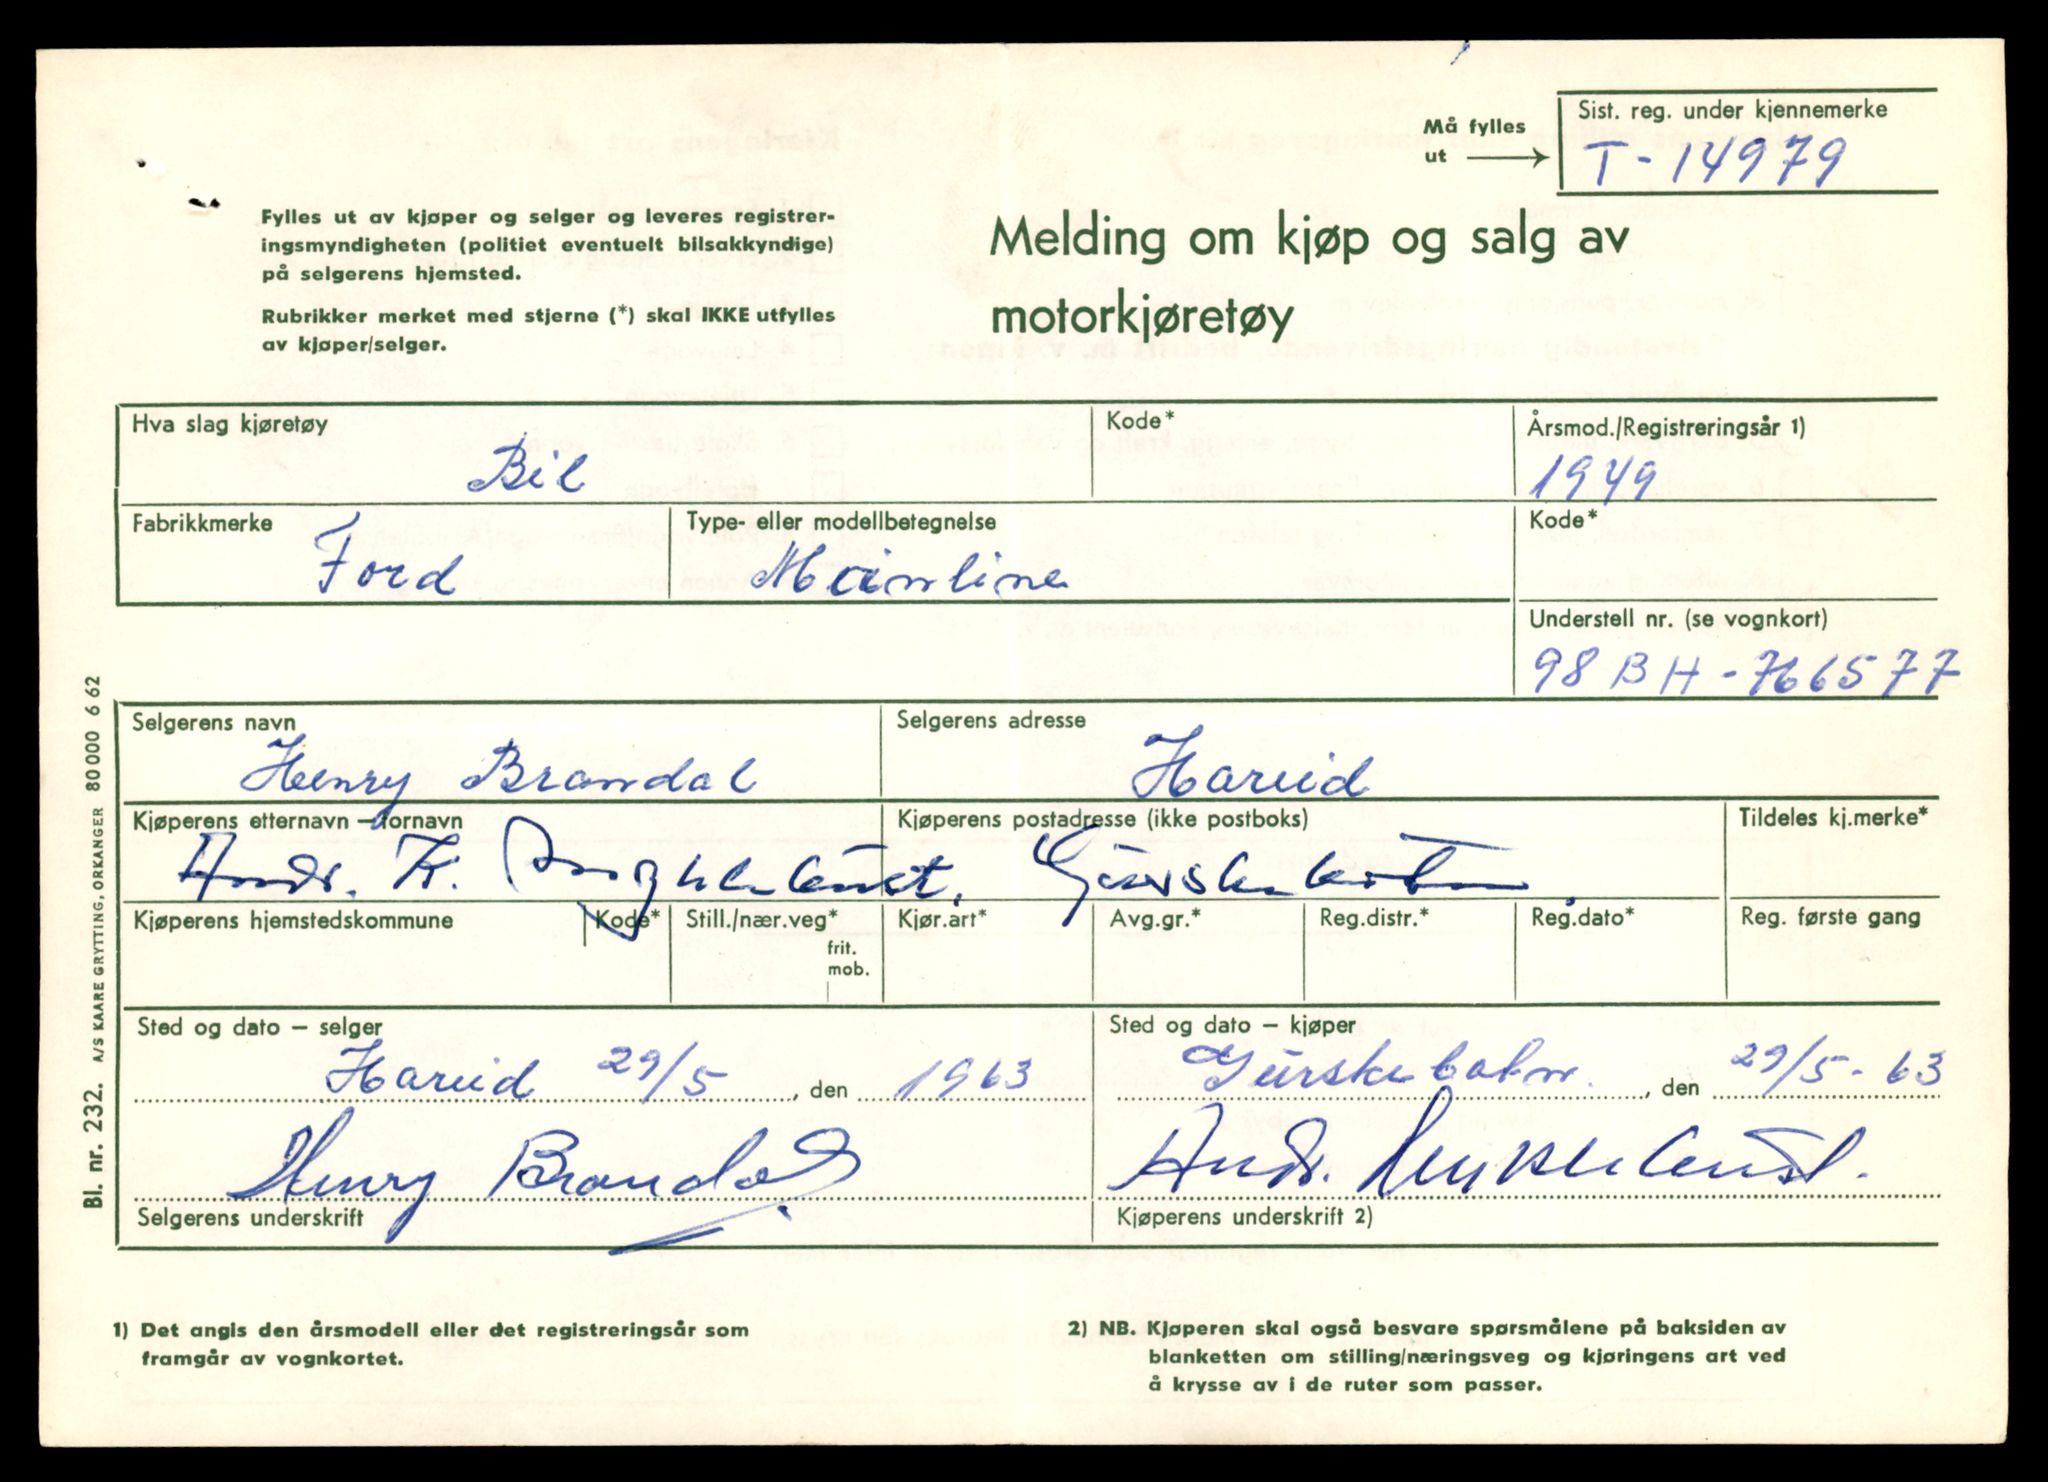 Må fylles ut →
Sist. reg. under kjennemerke
T - 14979
Fylles ut av kjøper og selger og leveres registrer-
ingsmyndigheten (politiet eventuelt bilsakkyndige)
på selgerens hjemsted.
Rubrikker merket med stjerne (*) skal IKKE utfylles
av kjøper/selger.
Melding om kjøp og salg av
motorkjøretøy
Hva slag kjøretøy
Bil
Kode*
Årsmod./Registreringsår 1)
1949
Fabrikkmerke
Ford
Type- eller modellbetegnelse
Mainline
Kode*
Understell nr. (se vognkort)
98 BH - 766577
Selgerens navn
Henry Brandal
Selgerens adresse
Hareid
Kjøperens etternavn – fornavn
Andr. K.
Kjøperens postadresse (ikke postboks)
Gurskebotn
Tildeles kj.merke*
Kjøperens hjemstedskommune
Kode*
Still./nær.veg*
frit.
mob.
Kjør.art*
Avg.gr.*
Reg.distr.*
Reg.dato*
Reg. første gang
Sted og dato – selger
Hareid 29/5, den 1963
Henry Brandal
Selgerens underskrift
Sted og dato – kjøper
Gurskebotn. , den 29/5 - 63
Andr.
Kjøperens underskrift 2)
1) Det angis den årsmodell eller det registreringsår som
framgår av vognkortet.
2) NB. Kjøperen skal også besvare spørsmålene på baksiden av
blanketten om stilling/næringsveg og kjøringens art ved
å krysse av i de ruter som passer.
Bl. nr. 232. A/S KAARE GRYTTING, ORKANGER 80000 6 62